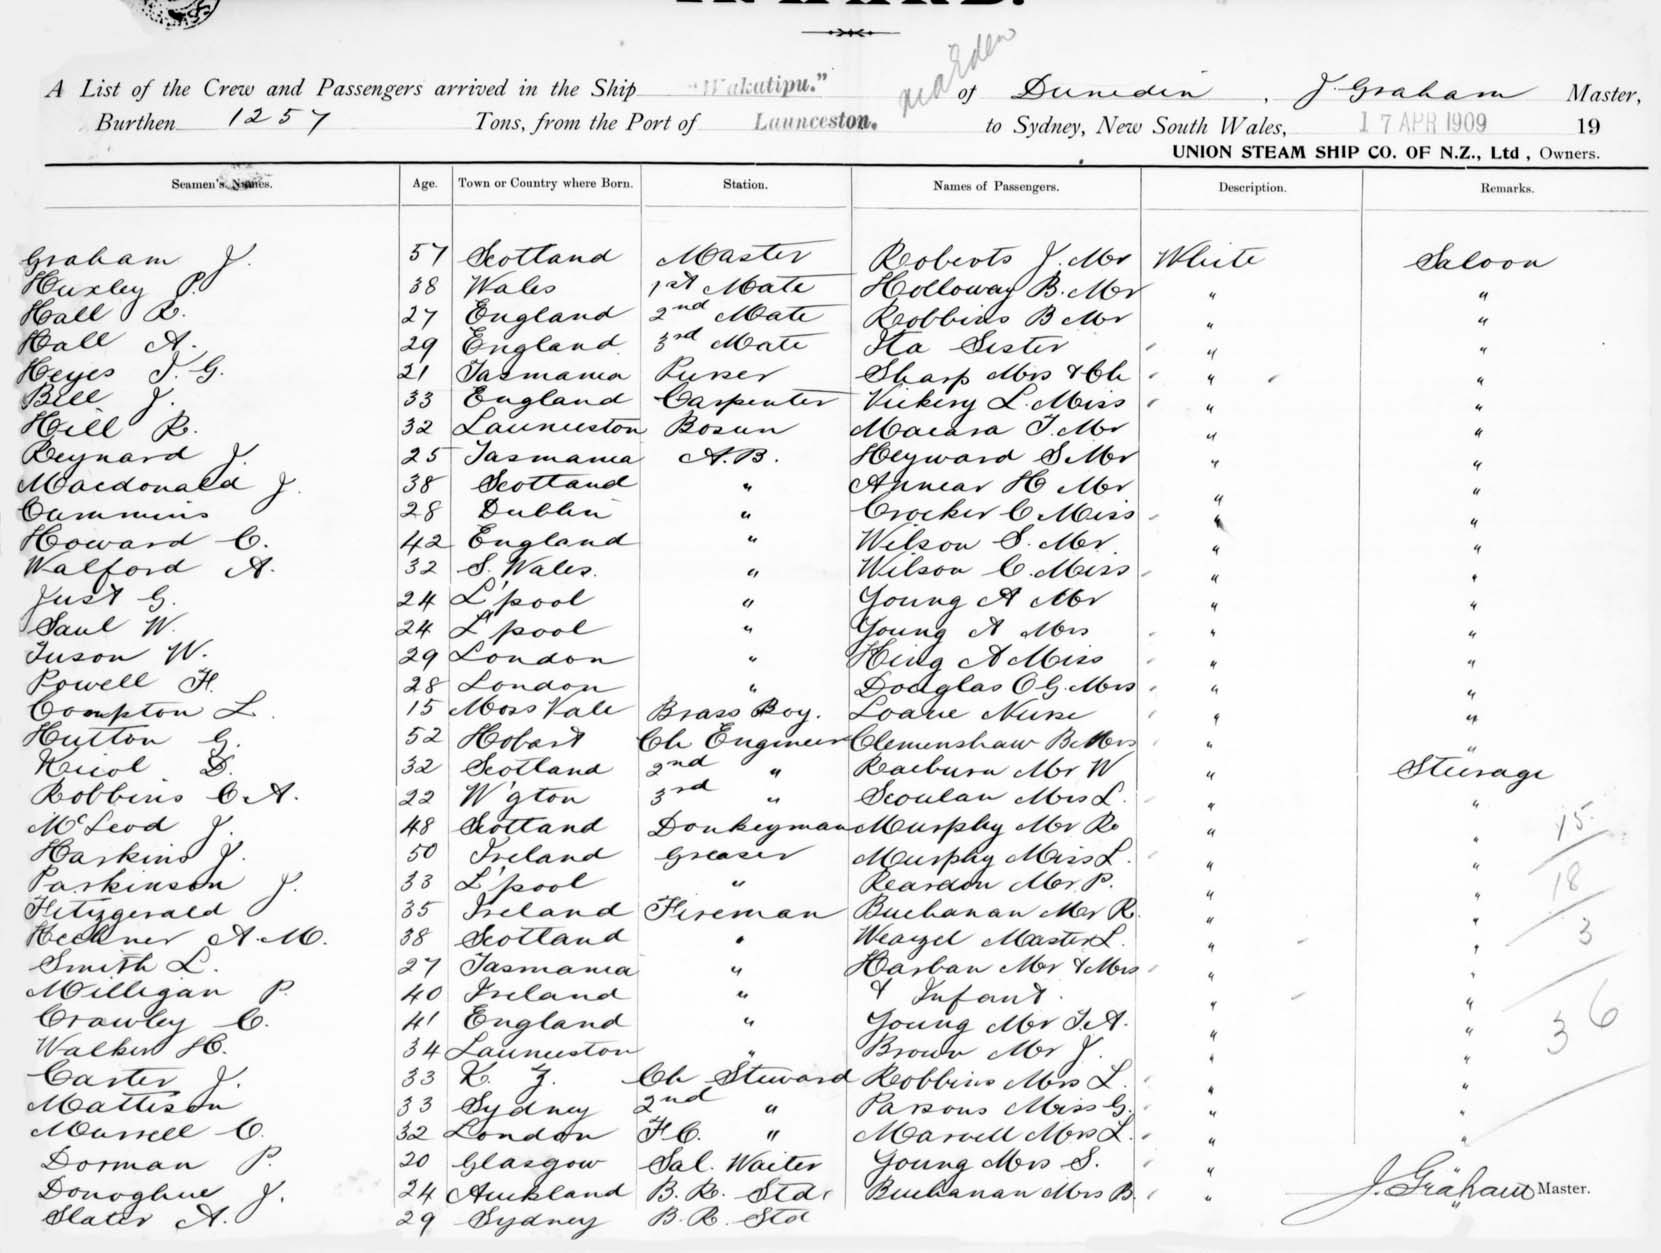 A List of the Crew and Passengers arrived in the Ship "Wakatipu." of Dunedin, J. Graham Master,
Burthen 1257 Tons, from the Port of Launceston. to Sydney, New South Wales, 17 APR 1909 19
UNION STEAM SHIP CO. OF N.Z., Ltd, Owners.
Seamen's Names. Age. Town or Country where Born. Station. Names of Passengers. Description. Remarks.
Graham J. 57 Scotland Master Roberts J. Mr White Saloon
Huxley P. 38 Wales 1st Mate Holloway B. Mr " "
Hall R. 27 England 2nd Mate Robbins B Mr " "
Hall A. 29 England 3rd Mate Ita Sister " "
Heyes J. G. 21 Tasmania Purser Sharp Mrs & Ch " "
Bell J. 33 England Carpenter Vickery L. Miss " "
Hill R. 32 Launceston Bosun Macara J. Mr " "
Reynard J. 25 Tasmania A.B. Heyward S Mr " "
Macdonald J. 38 Scotland " Annear H Mr " "
Cummins 28 Dublin " Crocker C Miss " "
Howard C. 42 England " Wilson S. Mr " "
Walford A. 32 S. Wales. " Wilson C. Miss " "
Just G. 24 L'pool " Young A Mr " "
Saul W. 24 L'pool " Young A Mrs " "
Tuson W. 29 London " King A Miss " "
Powell H. 28 London " Douglas O G. Mrs " "
Compton L. 15 Moss Vale Brass Boy. Loane Nurse " "
Hutton G. 52 Hobart Ch Engineer Clemenshaw B Mrs " "
Nicol D. 32 Scotland 2nd " Raeburn Mr W " Steerage
Robbins C A. 22 W'gton 3rd " Scoulan Mrs L. " "
McLeod J. 48 Scotland Donkeyman Murphy Mr R " " 15
Harkins J. 50 Ireland Greaser Murphy Miss L. " "
Parkinson J. 33 L'pool " Reardon Mr P. " " 18
Fitzgerald 35 Ireland Fireman Buchanan Mr R. " "
A. M. 38 Scotland " Master L. " " 3
Smith L. 27 Tasmania " Harban Mr & Mrs " "
Milligan P. 40 Ireland " & Infant. " "
Crawley C. 41 England " Young Mr J. A. " " 36
Walker H. 34 Launceston " Brown Mr J. " "
Carter J. 33 N. Z. Ch Steward Robbins Mrs L. " "
Mattison 33 Sydney 2nd " Parsons Miss G. " "
Murrell C. 32 London F C. " Marvell Mrs L. " "
Dorman P. 20 Glasgow Sal. Waiter Young Mrs S. "
Donoghue J. 24 Auckland B. R. Std. Buchanan Mrs B. " J. Graham Master.
Slater A. 29 Sydney B. R. Std